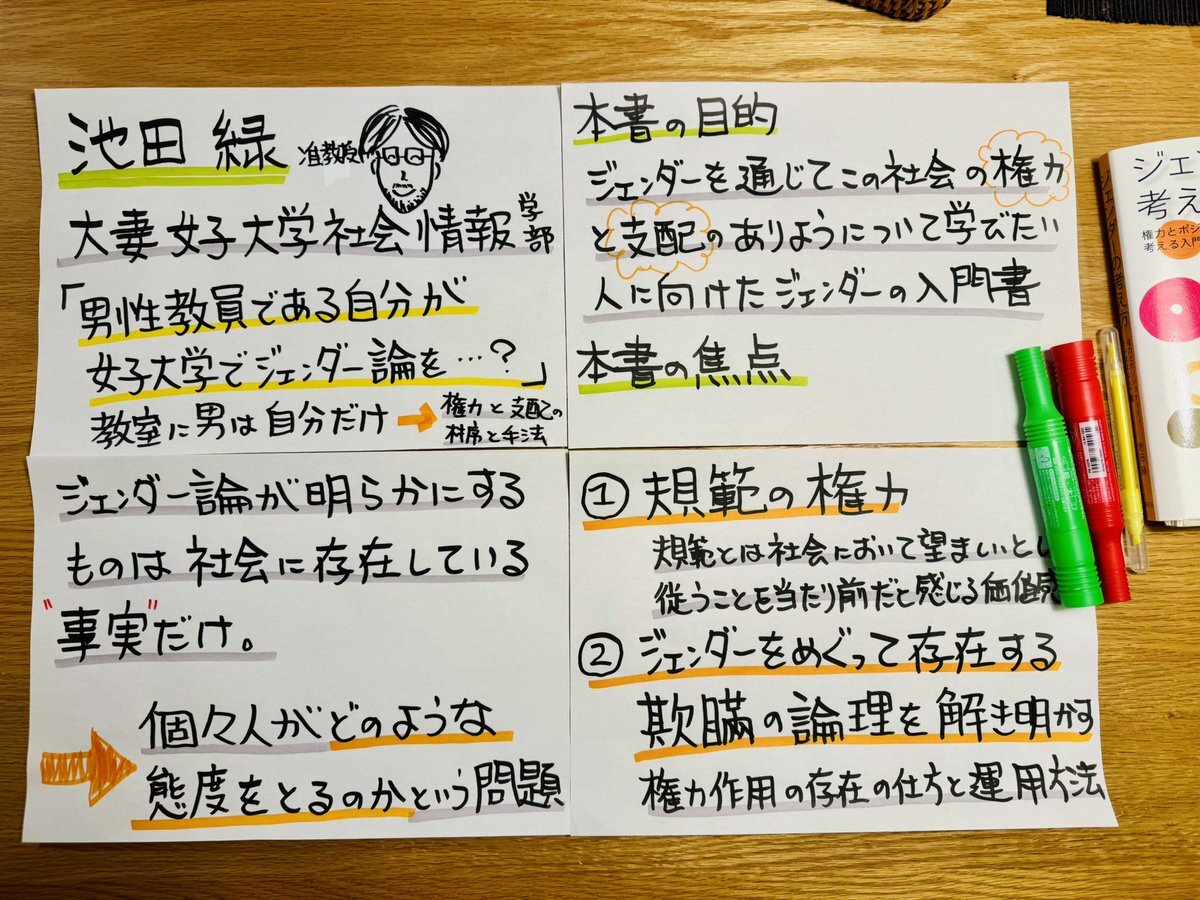 池田 緑 准教授
大妻女子大学社会情報学部
「男性教員である自分が
女子大学でジェンダー論を…?」
教室に男は自分だけ→権力と支配の
材席と手法
本書の目的
ジェンダーを通じてこの社会の権力
と支配のありようについて学びたい
人に向けたジェンダーの入門書
本書の焦点
ジェンダー論が明らかにする
ものは社会に存在している
"事実"だけ。
→個々人がどのような
態度をとるのかという問題
① 規範の権力
規範とは社会において望ましいとし
従うことを当たり前だと感じる価値
② ジェンダーをめぐって存在する
欺瞞の論理を解き明かす
権力作用の存在の仕方と運用方法
ジェン
考え
権力とポジ
考える入門
ジェンダーの考え方